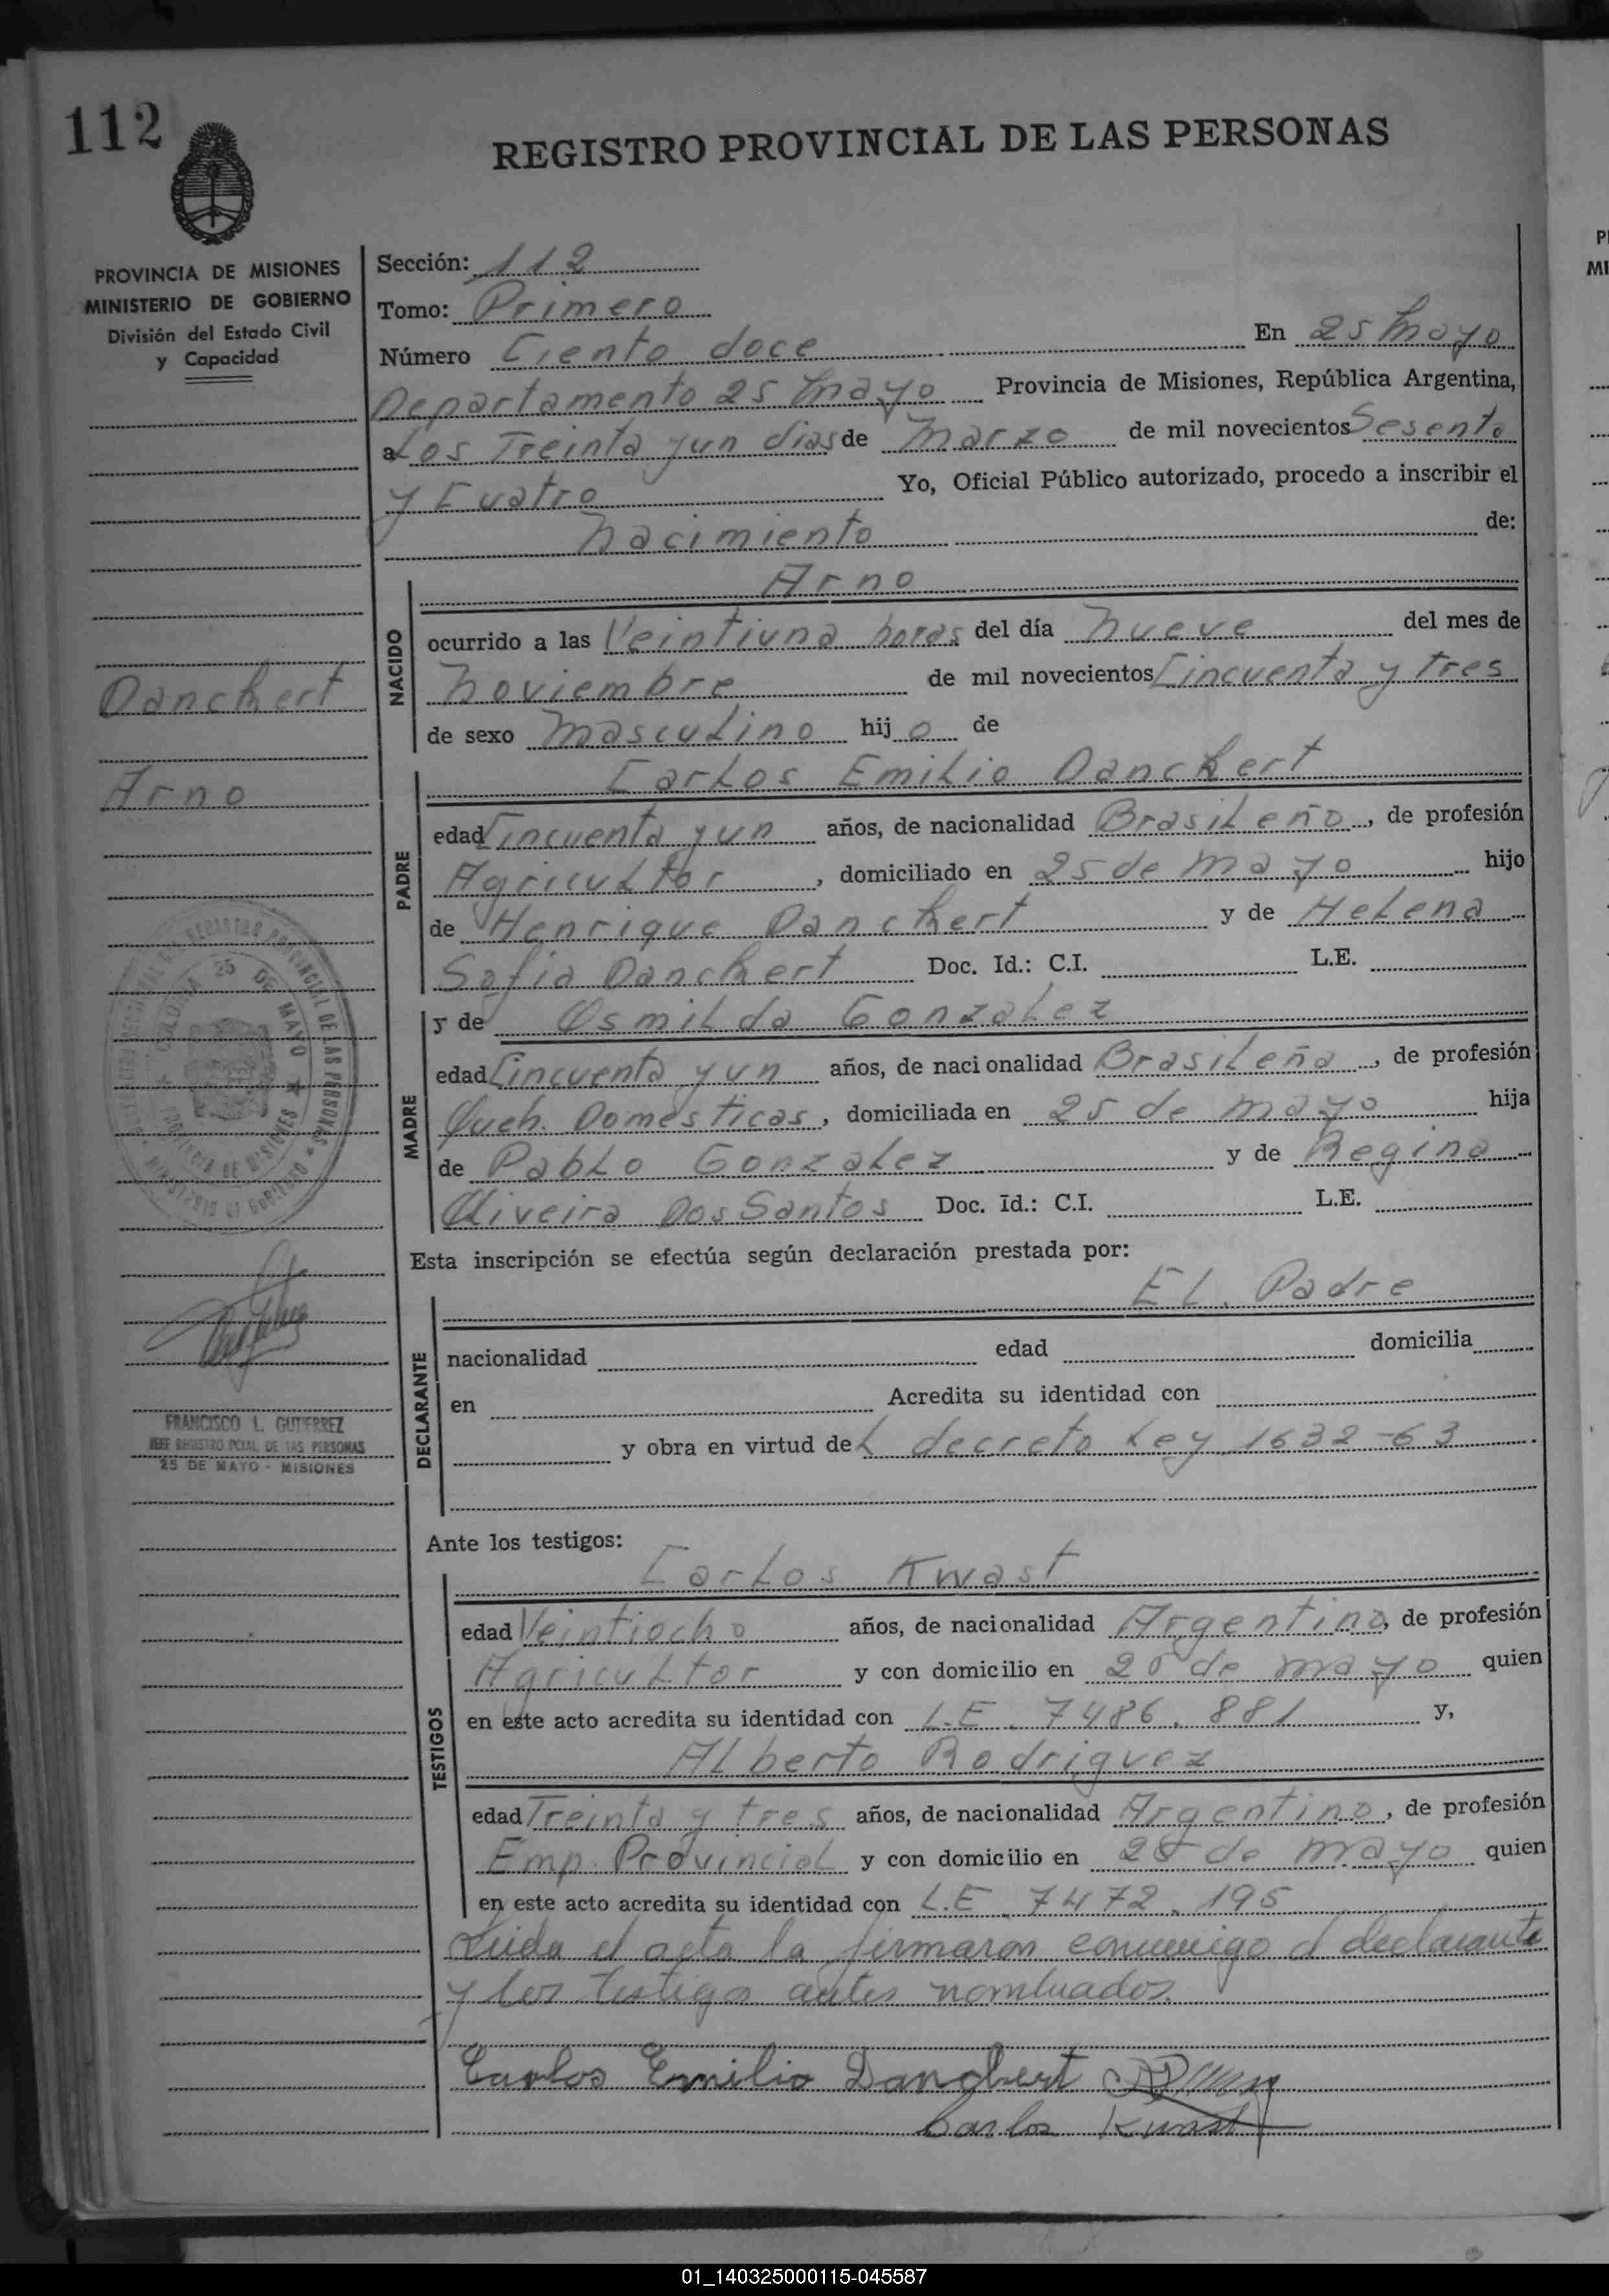 112
REGISTRO PROVINCIAL DE LAS PERSONAS
PROVINCIA DE MISIONES
MINISTERIO DE GOBIERNO
División del Estado Civil
y Capacidad
Sección: 112
Tomo: Primero
Número Ciento doce En 25 Mayo
Departamento 25 Mayo Provincia de Misiones, República Argentina,
a Los Treinta y un dias de Marzo de mil novecientos Sesenta
y Cuatro Yo, Oficial Público autorizado, procedo a inscribir el
Nacimiento de:
Arno
NACIDO
ocurrido a las Veintiuna horas del día Nueve del mes de
Noviembre de mil novecientos Cincuenta y Tres
de sexo Masculino hijo de
Danckert
Arno
Carlos Emilio Danckert
PADRE
edad Cincuenta y un años, de nacionalidad Brasileño, de profesión
Agricultor, domiciliado en 25 de Mayo hijo
de Henrique Danckert y de Helena
Sofia Danckert Doc. Id.: C.I. L.E.
y de Osmilda Gonzalez
MADRE
edad Cincuenta y un años, de nacionalidad Brasileña, de profesión
Queh. Domésticas, domiciliada en 25 de Mayo hija
de Pablo Gonzalez y de Regina
Oliveira Dos Santos Doc. Id.: C.I. L.E.
COLONIA 25 DE MAYO
PROVINCIA DE MISIONES
REGISTRO PROVINCIAL DE LAS PERSONAS
MINISTERIO DE GOBIERNO
Esta inscripción se efectúa según declaración prestada por:
El Padre
DECLARANTE
nacionalidad edad domicilia
en Acredita su identidad con
y obra en virtud del decreto Ley 1632-63
FRANCISCO L. GUTIERREZ
JEFE REGISTRO PCIAL DE LAS PERSONAS
25 DE MAYO - MISIONES
Ante los testigos:
Carlos Kwast
TESTIGOS
edad Veintiocho años, de nacionalidad Argentina, de profesión
Agricultor y con domicilio en 25 de Mayo quien
en este acto acredita su identidad con L.E. 7486.881 y,
Alberto Rodriguez
edad Treinta y tres años, de nacionalidad Argentino, de profesión
Emp. Provincial y con domicilio en 25 de Mayo quien
en este acto acredita su identidad con L.E. 7472.195
Leida el acta la firmaron conmigo el declarante
y los testigos antes nombrados.
Carlos Emilio Danckert
Carlos Kwast
01_140325000115-045587